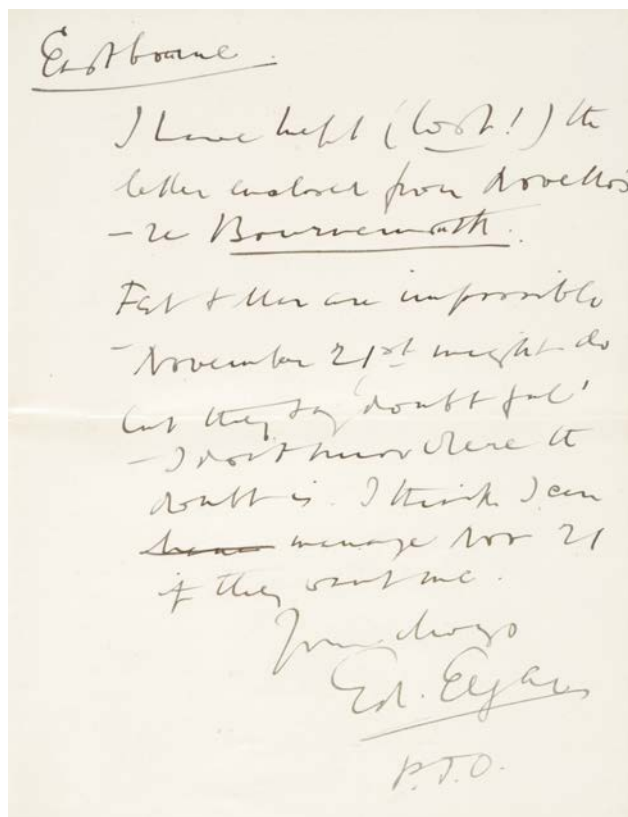 Eastbourne.
I have kept (lost!) the
letter enclosed from Novellos
– re Bournemouth.
Feb & Mar are impossible
– November 21st might do
but they say 'doubtful'
– I don't know where the
doubt is. I think I can
manage Nov 21
if they want me.
Yours always
Ed. Elgar
P.T.O.